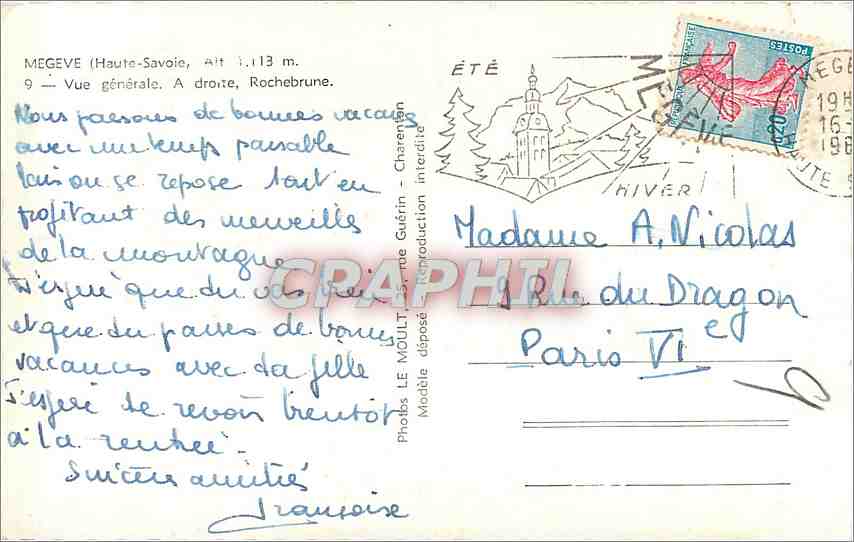 MEGEVE (Haute-Savoie, Alt 1.113 m.
9 — Vue générale. A droite, Rochebrune.
Nous passons de bonnes vacances
avec un temps passable
Liaison se repose tout en
profitant des merveilles
de la montagne
J'espère que tu vas bien
et que tu passes de bonnes
vacances avec ta fille
J'espère te revoir bientôt
à la rentrée.
Sincères amitiés
Françoise
Photos LE MOULT, 25, rue Guérin - Charenton
Modèle déposé Reproduction interdite
ÉTÉ
HIVER
MEGÈVE
REPUBLIQUE FRANÇAISE
POSTES
0,20
MEGE
19H
16-
196
HAUTE S
Madame A. Nicolas
9 Rue du Dragon
Paris VIe
9
CPAPHIL